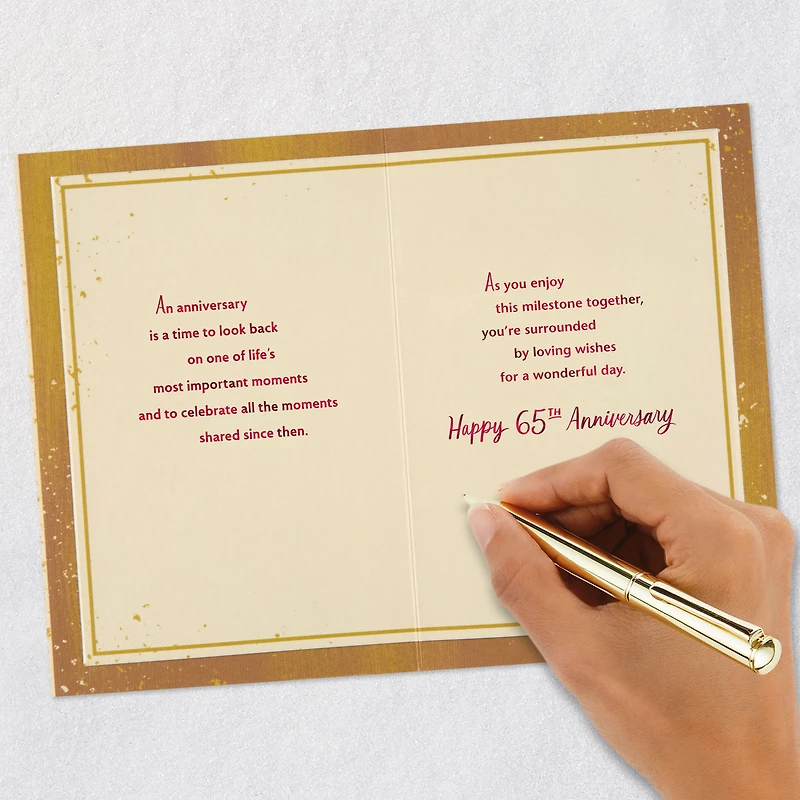 An anniversary
is a time to look back
on one of life's
most important moments
and to celebrate all the moments
shared since then.
As you enjoy
this milestone together,
you're surrounded
by loving wishes
for a wonderful day.
Happy 65TH Anniversary